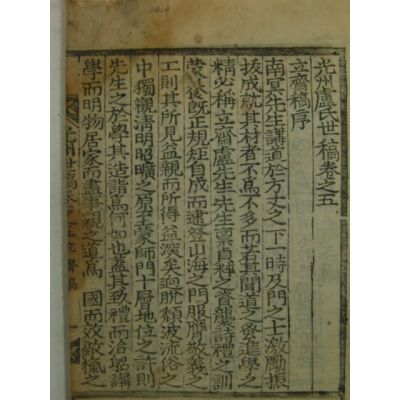 光州盧氏世稿卷之五
立齋稿序
南冥先生講道於方丈之下一時及門之士激勵振
拔成就其材者不爲不多而若其聞道之夙進學之
精必稱立齋盧先生先生禀貞粹之資襲詩禮之訓
蒙養旣正規矩自成而逮登山海之門服膺敬義之
工則其所見益親而所得益深矣迥脫頹波流俗之
中獨觀淸明昭曠之原至蒙師門十層地位之許則
先生之於學其造詣爲何如也蓋其致禮而治躬講
學而明物居家而盡事親之道爲 國而效敵愾之
世稿卷之五立齋稿